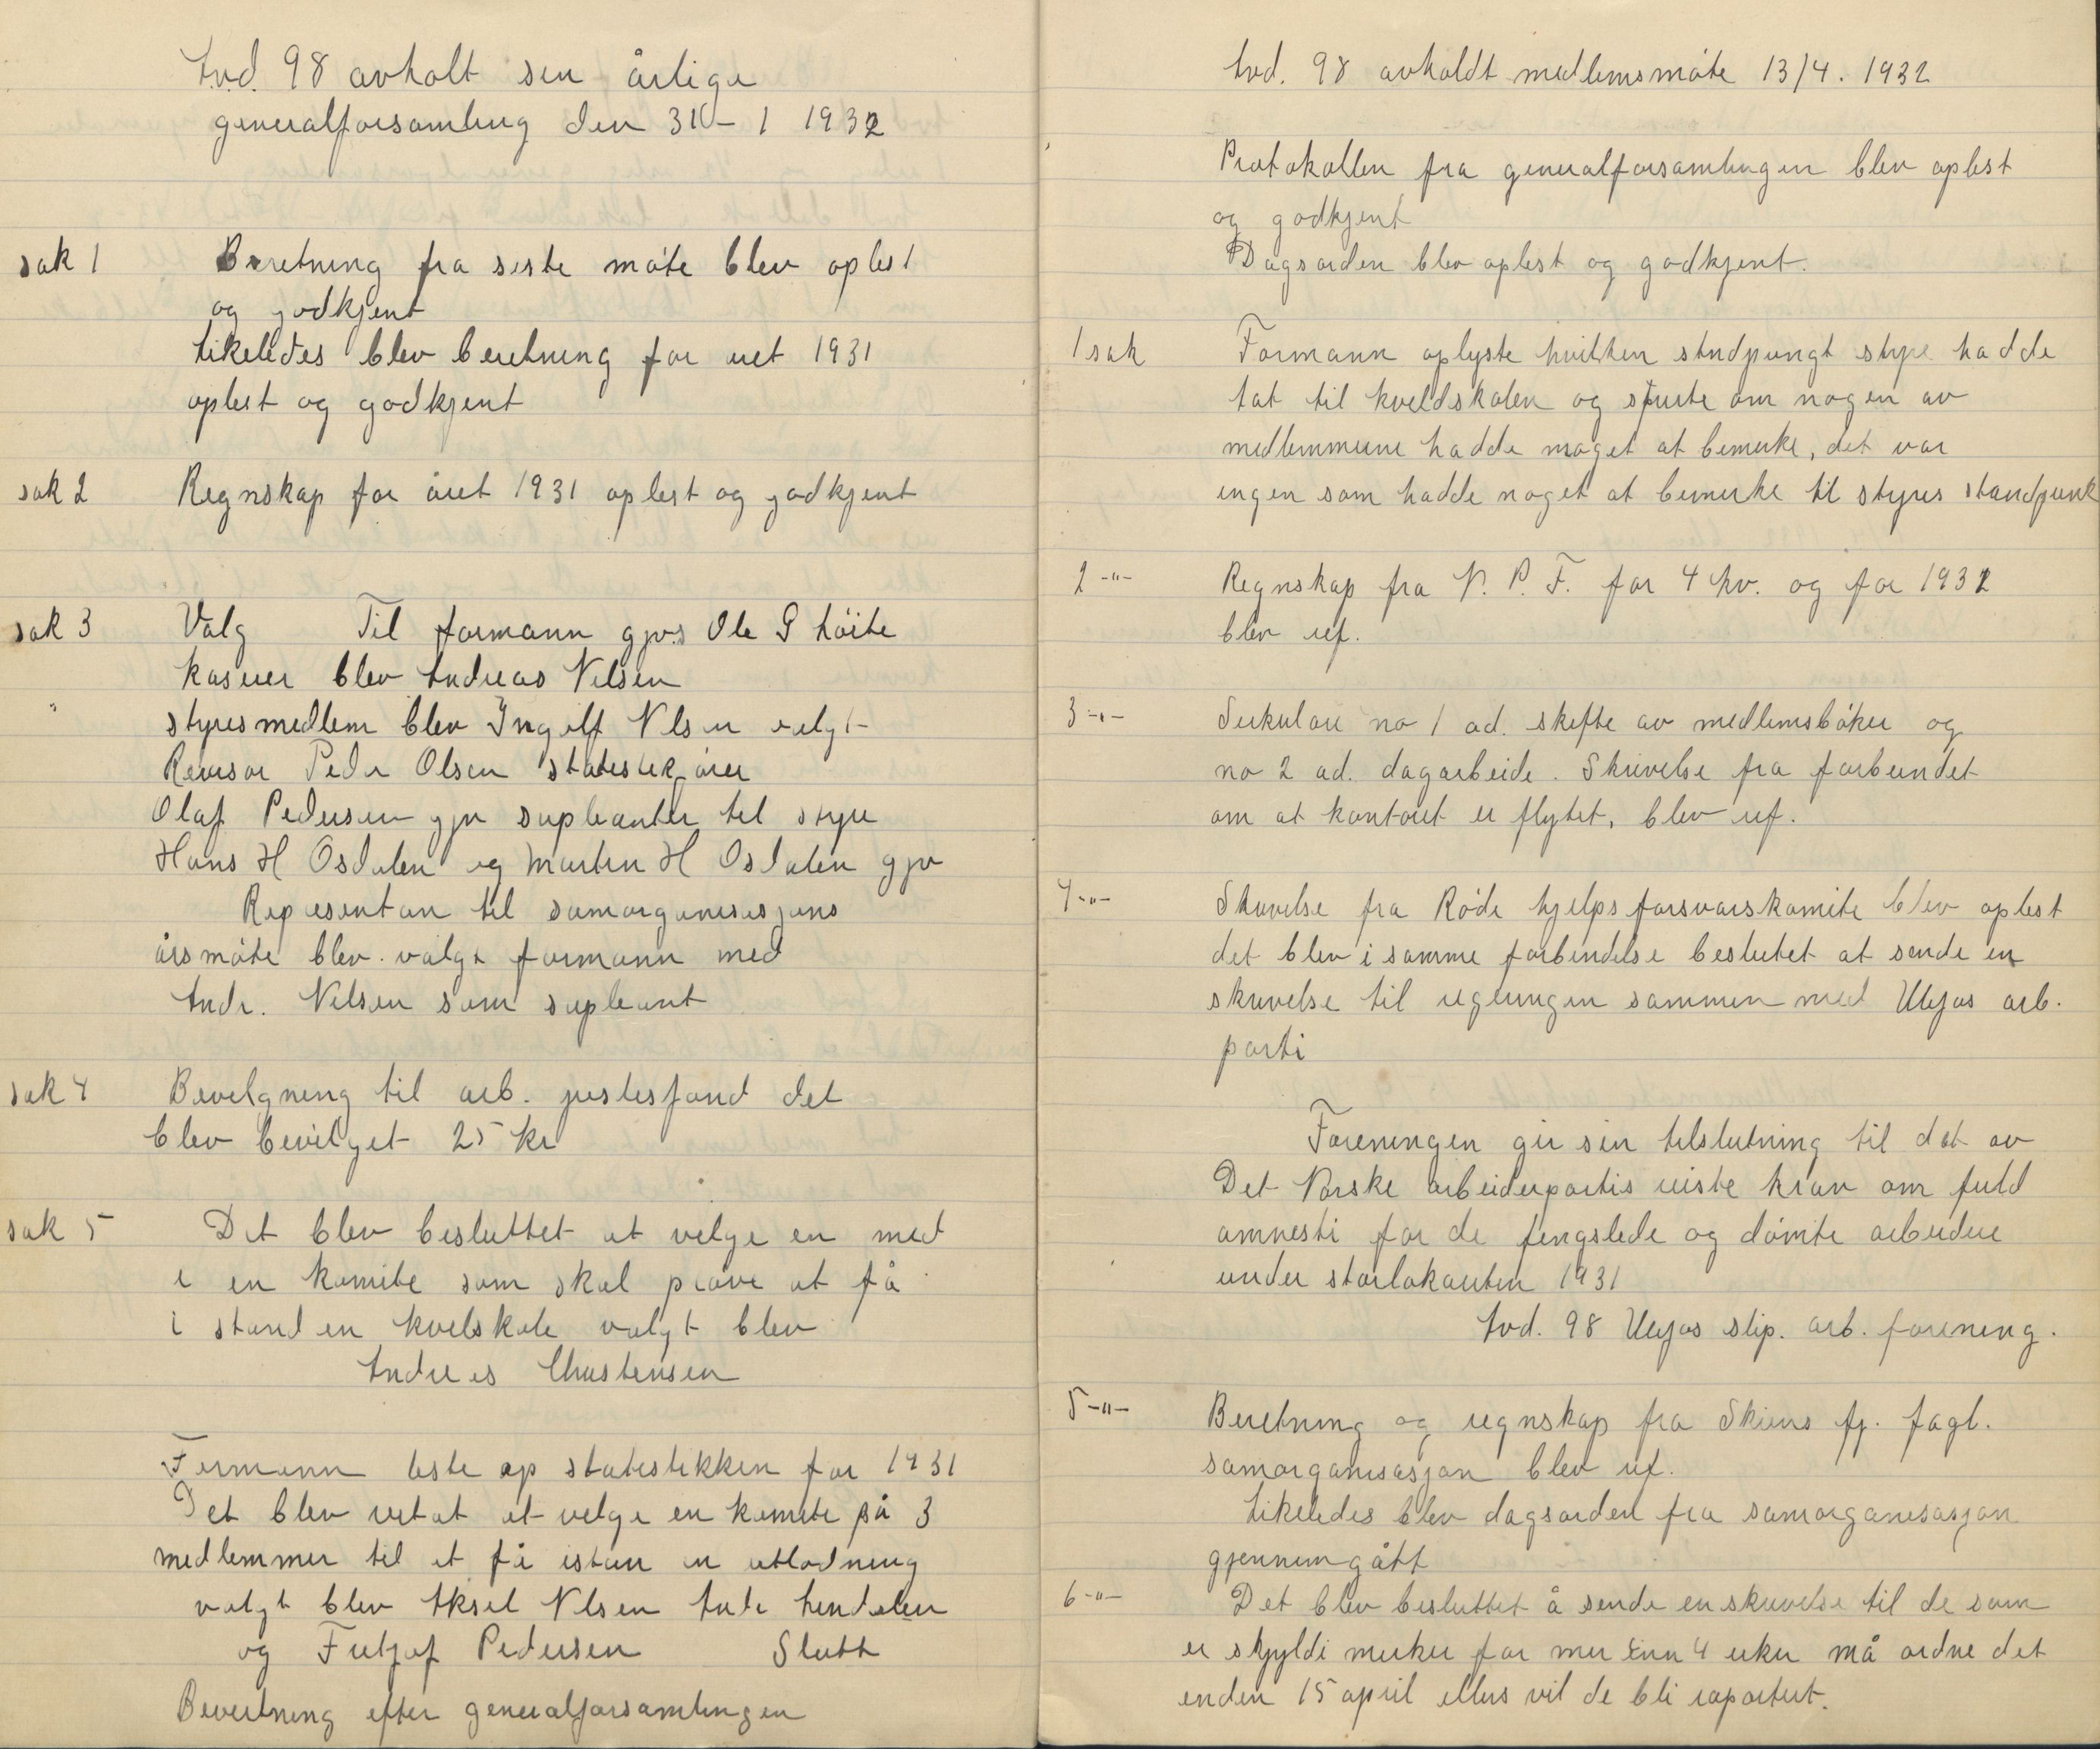 Avd. 98 avholt sin årlige
generalforsamling den 31 – 1 1932
sak 1 Beretning fra siste møte blev oplest
og godkjent
Likeledes blev beretning for året 1931
oplest og godkjent
sak 2 Regnskap for året 1931 oplest og godkjent
sak 3 Valg Til formann gjv. Ole G Höite
kaserer blev Andreas Nilsen
styresmedlem blev Ingolf Nilsen valgt
Revisor Peder Olsen statestikförer
Olaf Pedersen gjv supleanter til styre
Hans H Osdalen og Martin H Osdalen gjv
Representan til samorganisasjons
årsmøte blev valgt formann med
Andr. Nilsen som supleant
sak 4 Bevilgning til arb. justisfond det
blev bevilget 25 kr
sak 5 Det blev besluttet at velge en med
i en komite som skal prøve at få
i stand en kvelskole valgt blev
Andreas Christensen
Formann leste op statestikken for 1931
Det blev vetat at velge en komite på 3
medlemmer til at få istan en utlodning
valgt blev Aksel Nilsen Andr Lendalen
og Fritjof Pedersen Slutt
Bevertning efter generalforsamlingen
Avd. 98 avholdt medlemsmøte 13/4. 1932
Protokollen fra generalforsamlingen blev oplest
og godkjent
Dagsorden blev oplest og godkjent.
1 sak Formann oplyste hvilken stndpungt styre hadde
tat til kveldskolen og spurte om nogen av
medlemmene hadde noget at bemerke, det var
ingen som hadde noget at bemerke til styres standpunk
2 -"- Regnskap fra N. P. F. for 4 kv. og for 1932
blev ref.
3 -"- Serkulare no 1 ad. skifte av medlemsbøker og
no 2 ad. dagarbeide. Skrivelse fra forbundet
om at kontoret er flytet, blev ref.
4 -"- Skrivelse fra Røde hjelps forsvarskomite blev oplest
det blev i samme forbindelse beslutet at sende en
skrivelse til regjeringen sammen med Ulefos arb.
parti
Foreningen gir sin tilslutning til det av
Det Norske arbeiderpartis reiste krav om fuld
amnesti for de fengslede og dømte arbeidere
under storlokauten 1931
Avd. 98 Ulefos slip. arb. forening.
5 -"- Beretning og regnskap fra Skiens fj. fagl.
samorganisasjon blev ref.
Likeledes blev dagsorden fra samorganisasjon
gjennemgått
6 -"- Det blev besluttet å sende en skrivelse til de som
er skyldi merker for mer enn 4 uker må ordne det
enden 15 april ellers vil de bli raportert.